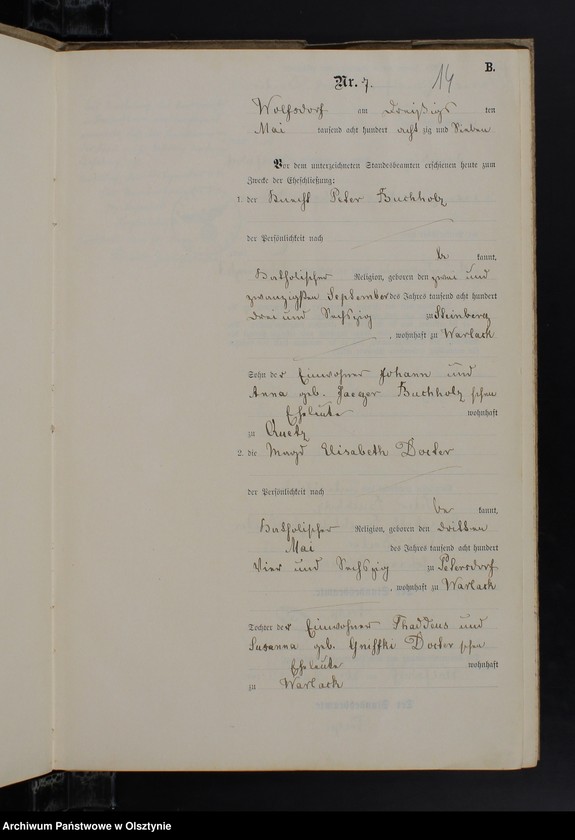 B.
Nr. 7. 14
Wolfsdorf am dreißigs ten
Mai tausend acht hundert acht zig und Sieben
Vor dem unterzeichneten Standesbeamten erschienen heute zum
Zwecke der Eheschließung:
1. der Knecht Peter Buchholz
der Persönlichkeit nach
be kannt,
katholischer Religion, geboren den zwei und
zwanzigsten September des Jahres tausend acht hundert
drei und Sechszig zu Steinberg
, wohnhaft zu Warlack
Sohn der Einwohner Johann und
Anna geb. Jaeger Buchholz schen
Eheleute wohnhaft
zu Quetz
2. die Magd Elisabeth Docter
der Persönlichkeit nach
be kannt,
katholischer Religion, geboren den dritten
Mai des Jahres tausend acht hundert
vier und Sechszig zu Petersdorf
, wohnhaft zu Warlack
Tochter der Einwohner Thaddeus und
Susanna geb. Docter schen
Eheleute wohnhaft
zu Warlack
Archiwum Państwowe w Olsztynie